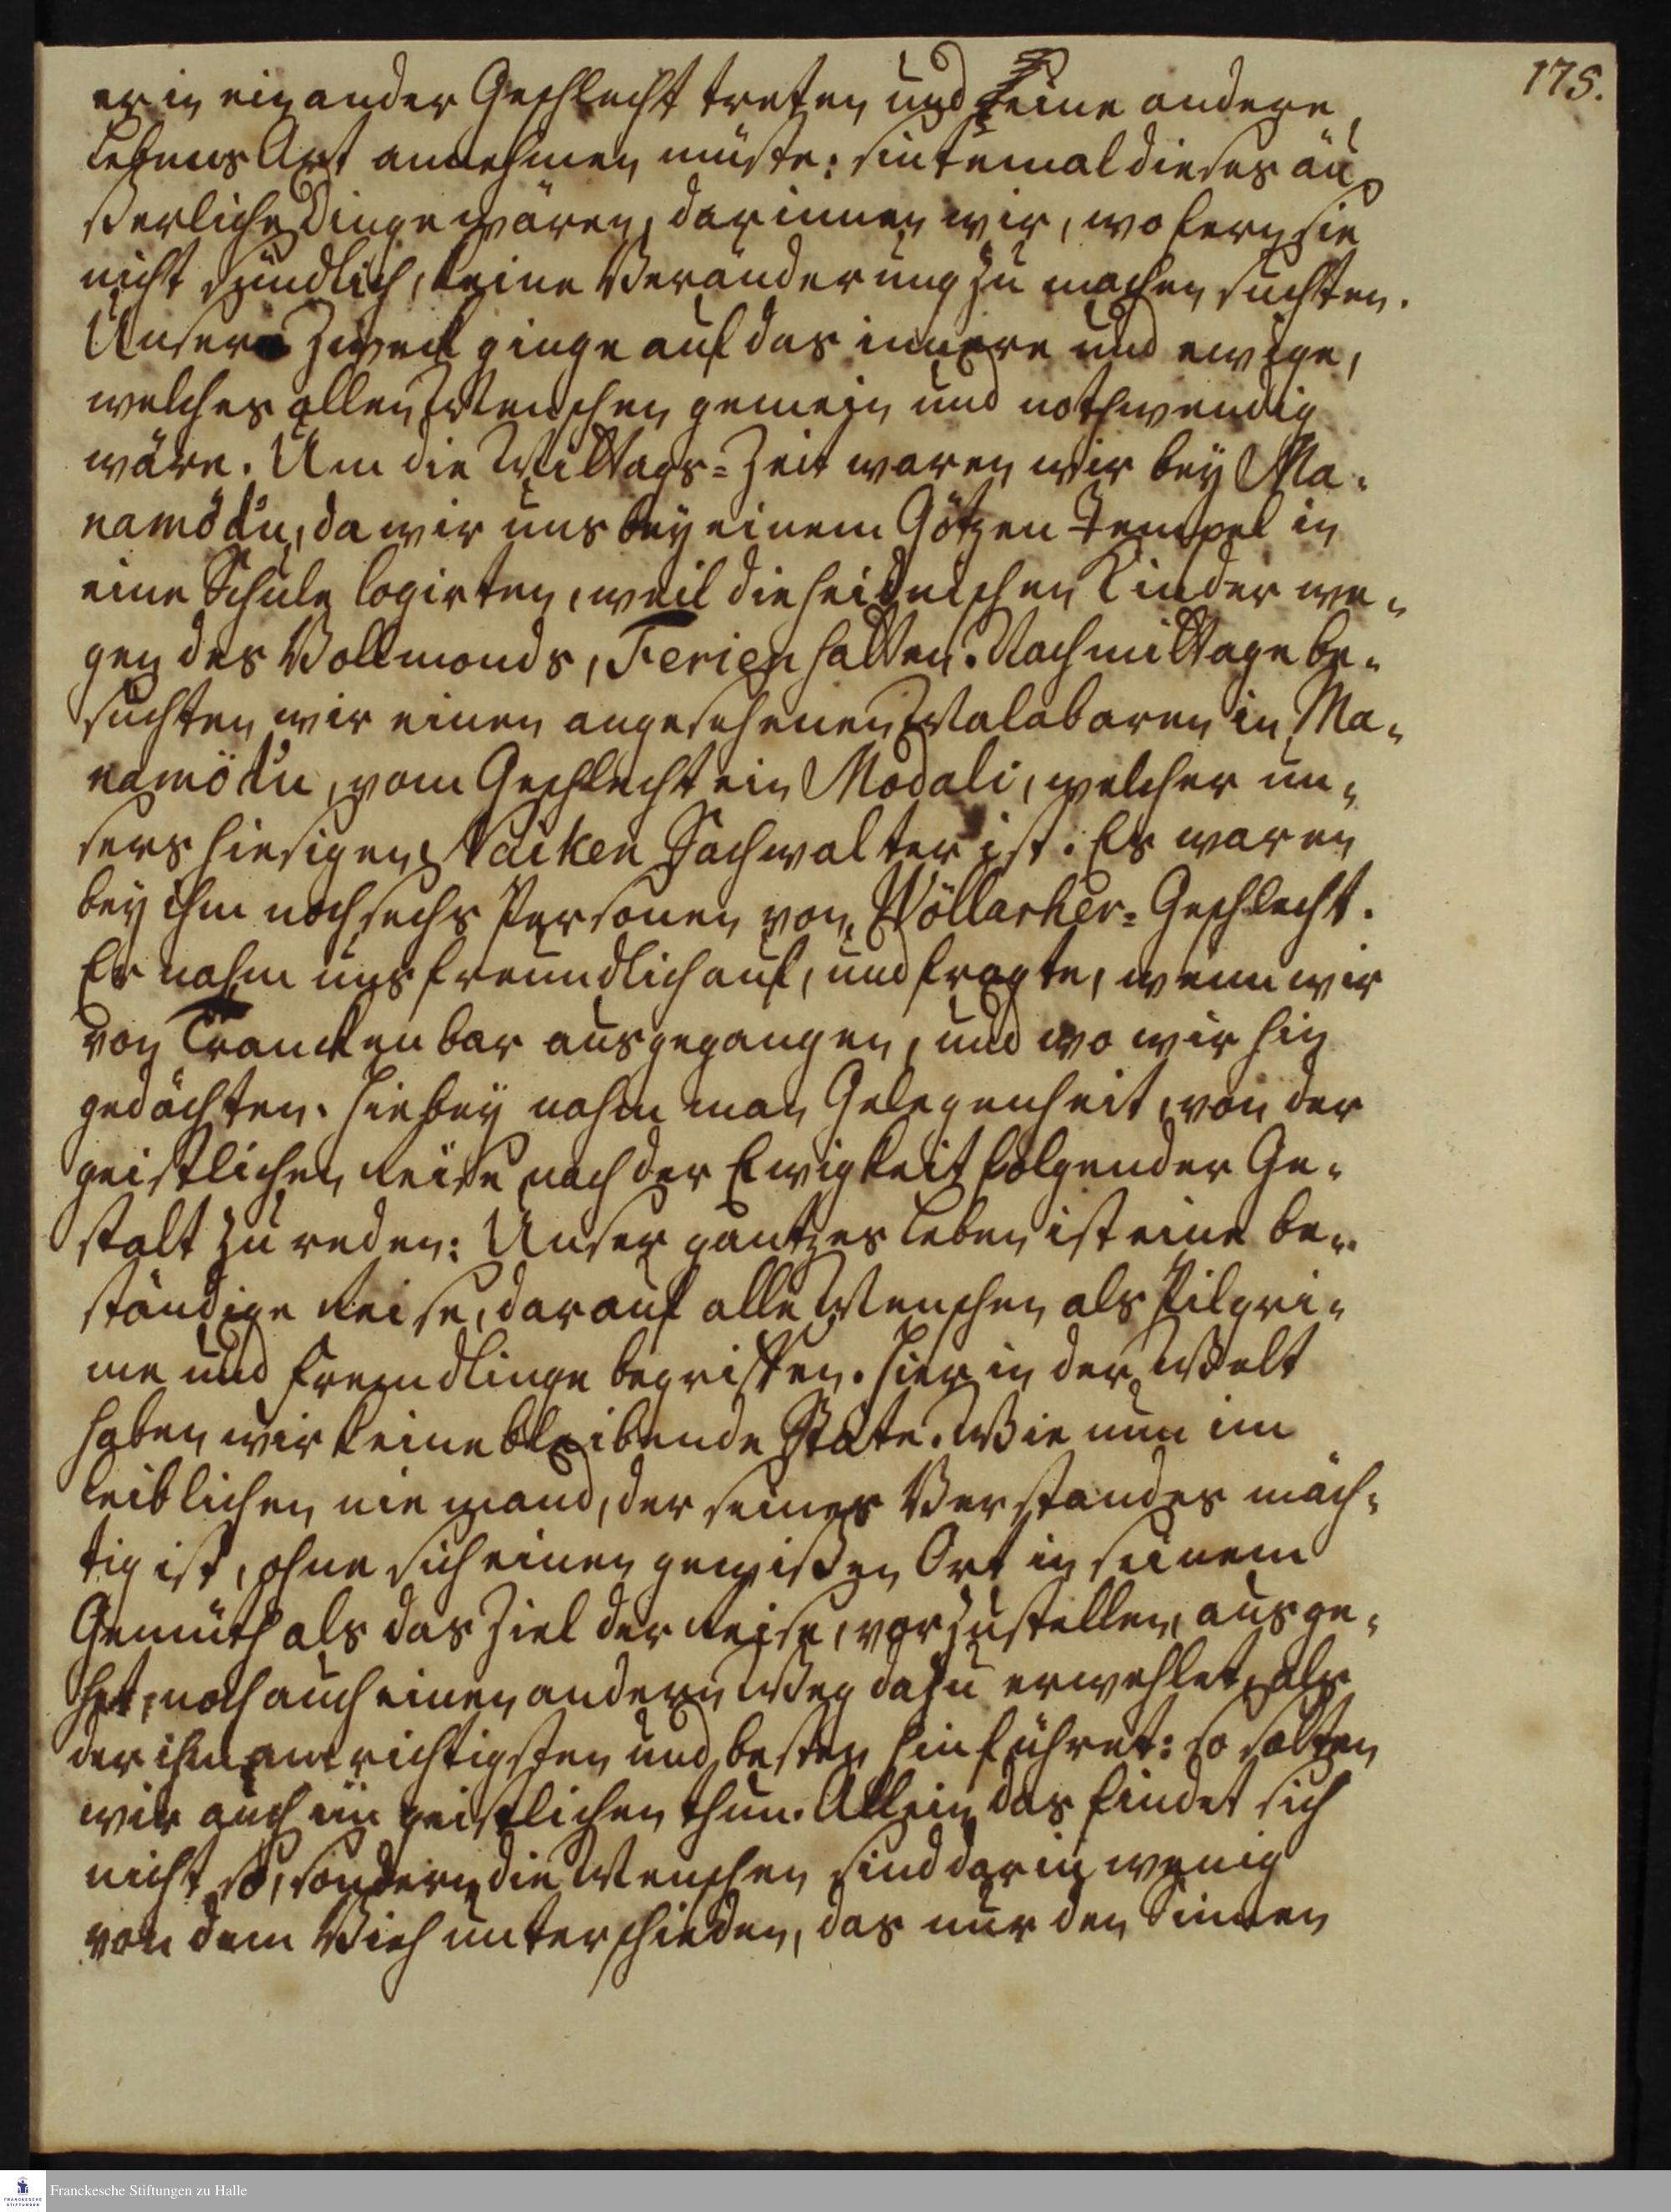 175.
er in ein ander Geschlecht treten und eine andere
Lebens Art annehmen müste: sintemal dieses äu
ßerliche Dinge wären, darinnen wir, wofern sie
nicht sündlich, keine Veränderung zu machen suchten.
Unser Zweck ginge auf das innere und ewige,
welches allen Menschen gemein und nothwendig
wäre. Um die Mittags=Zeit waren wir bey Ma=
namödu, da wir uns bey einem Götzen Tempel in
eine Schule logirten, weil die heidnischen Kinder we=
gen des Vollmonds, Ferien hatten. Nachmittage be=
suchten wir einen angesehenen Malabaren in Ma=
namödu, vom Geschlecht ein Modali, welcher un=
sers hiesigen Naiken Sachwalter ist. Es waren
bey ihm noch sechs Personen von Wöllarher=Geschlecht.
Er nahm uns freundlich auf, und fragte, wenn wir
von Tranckenbar ausgegangen, und wo wir hin
gedächten. Hiebey nahm man Gelegenheit, von der
geistlichen Reise nach der Ewigkeit folgender Ge=
stalt zu reden: Unser gantzes Leben ist eine be=
ständige Reise, darauf alle Menschen als Pilgri=
me und Fremdlinge begriffen. Hier in der Welt
haben wir keine bleibende Stäte. Wie nun im
leiblichen niemand, der seines Verstandes mäch=
tig ist, ohne sich einen gewißen Ort in seinem
Gemüth als das Ziel der Reise, vorzustellen, ausge=
het, noch auch einen andern Weg dazu erwehlet, als
der ihn am richtigsten und besten hinführet: so solten
wir auch im geistlichen thun. Allein das findet sich
nicht so, sondern die Menschen sind darin wenig
von dem Vieh unterschieden, das nur den Sinnen
Franckesche Stiftungen zu Halle
FRANCKESCHE
STIFTUNGEN